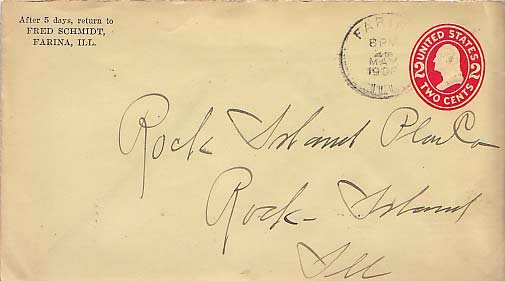 After 5 days, return to
FRED SCHMIDT,
FARINA, ILL.
FARINA
6 PM
MAY
ILL.
UNITED STATES
2 2
TWO CENTS
Rock Island Plow Co
Rock Island
Ill